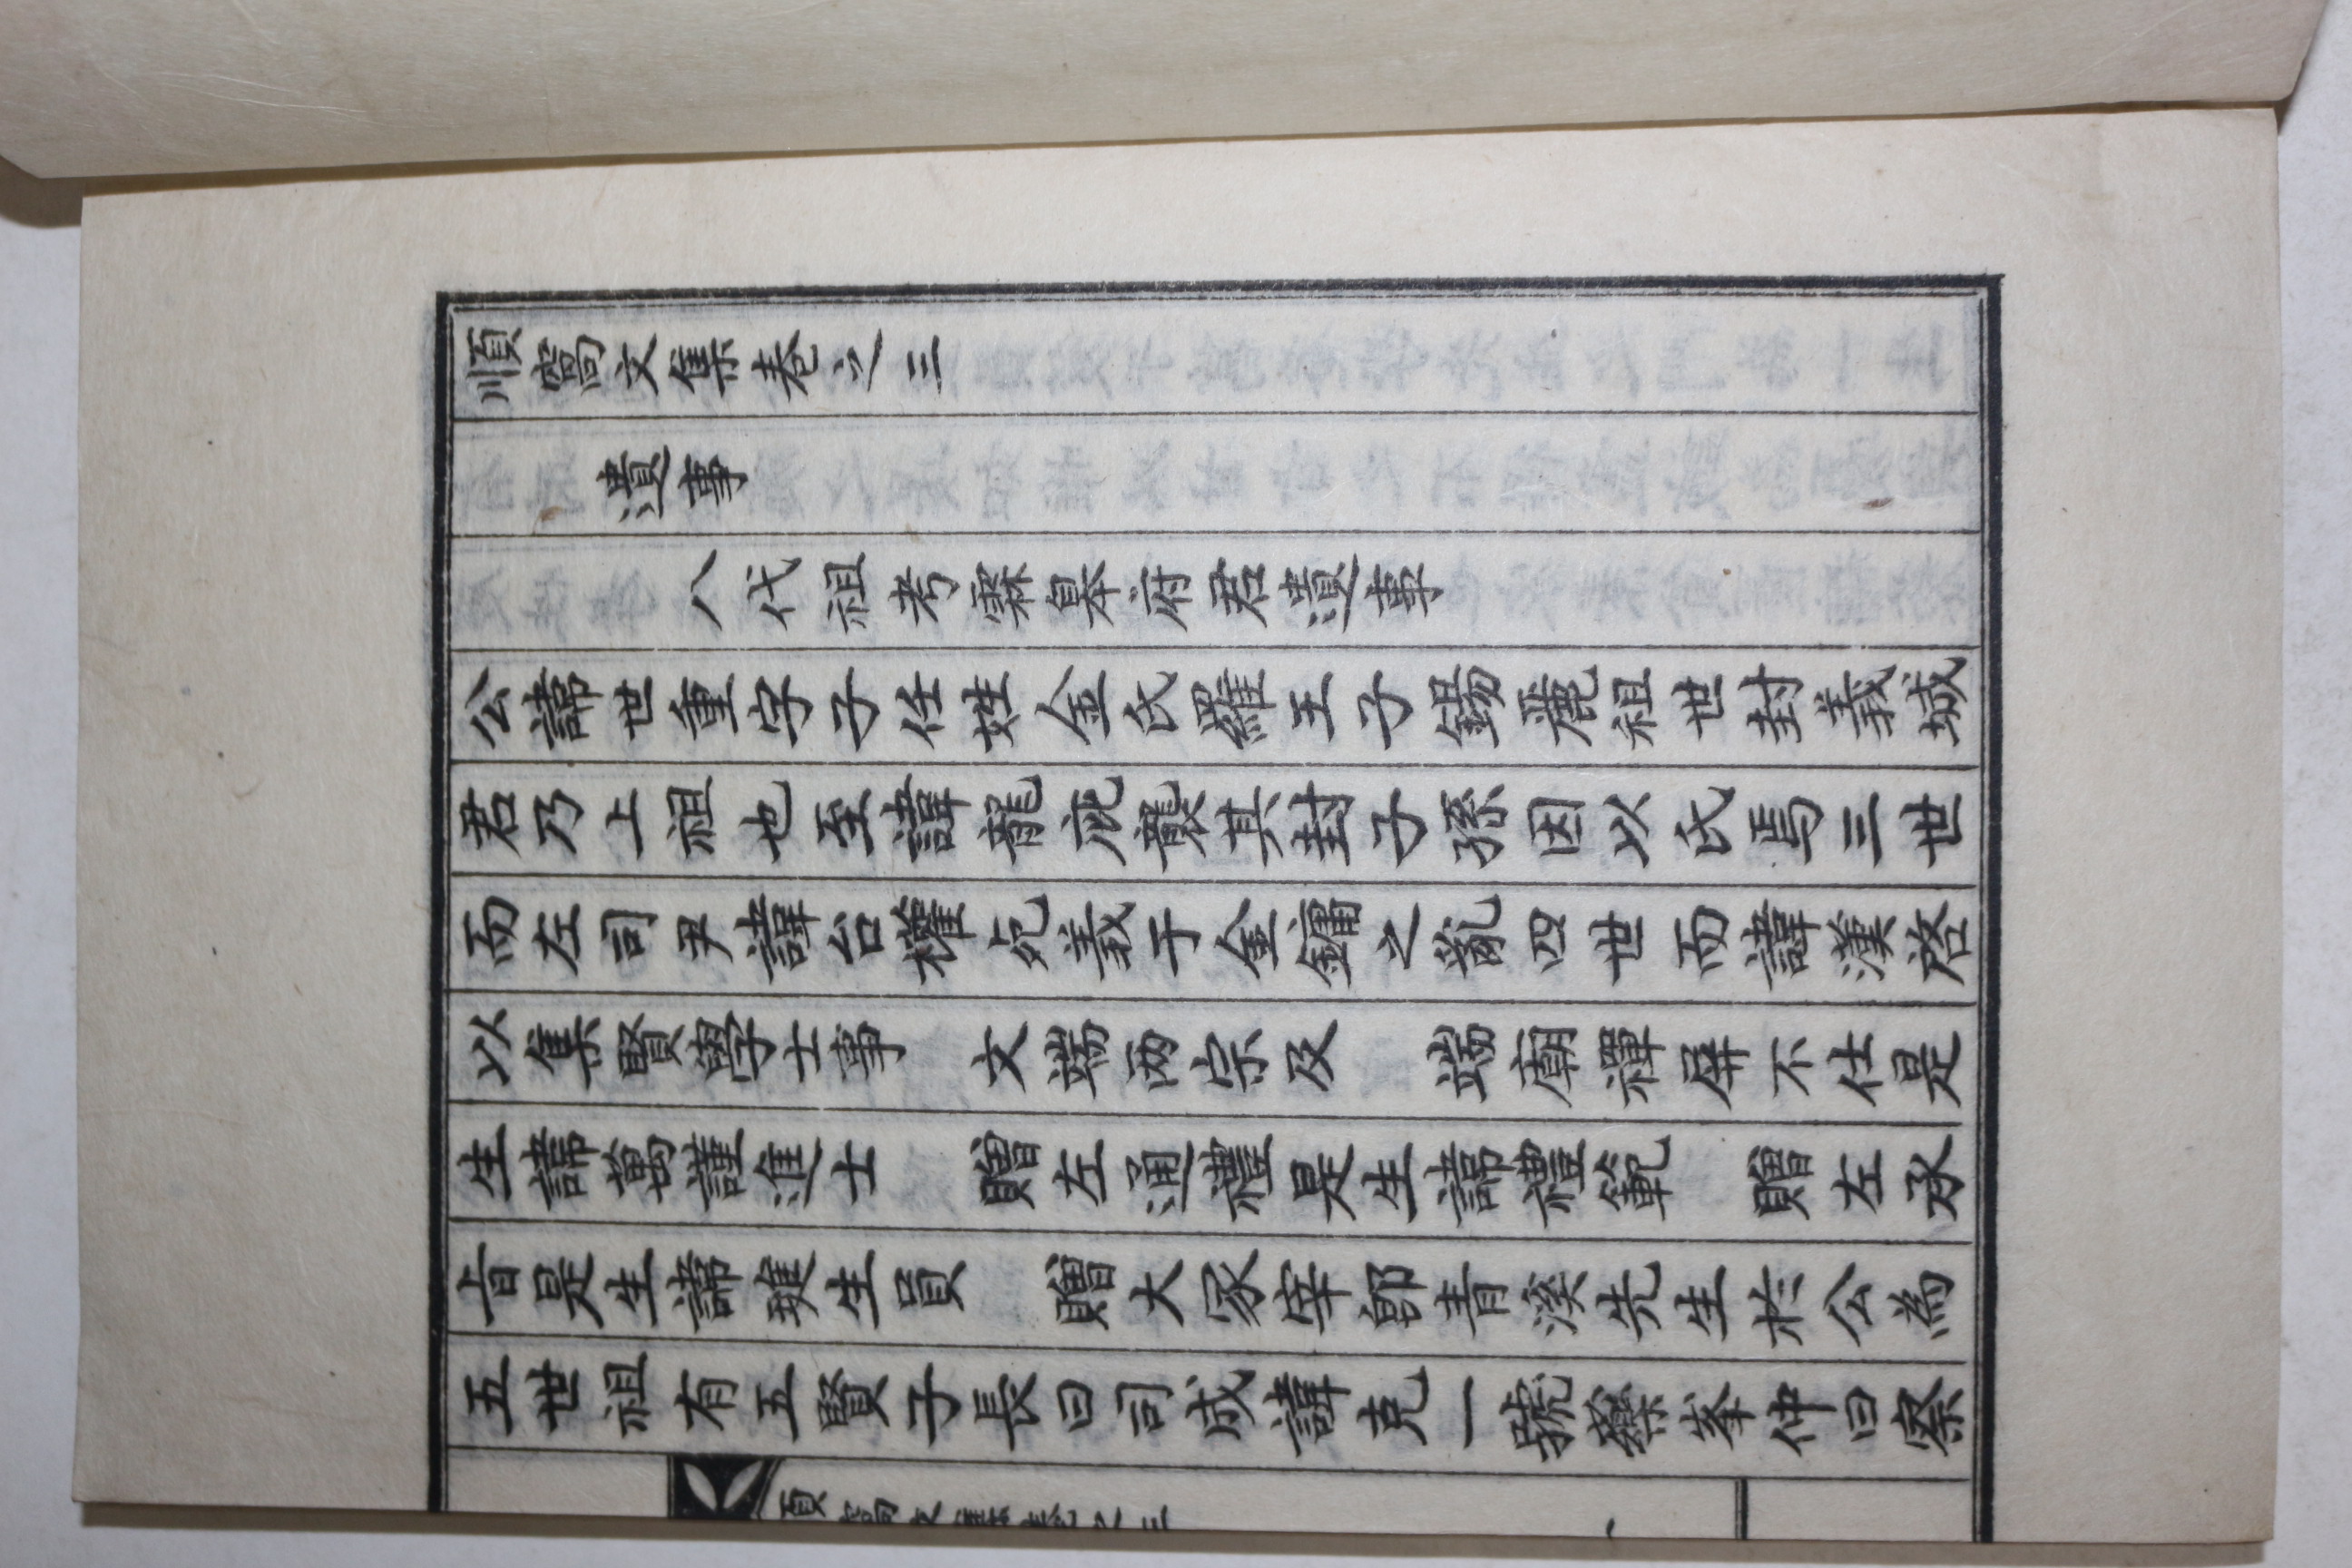 順窩文集卷之三
遺事
八代祖考霖皐府君遺事
公諱世重字子任姓金氏羅王子錫麗祖世封義城
君乃上祖也至諱龍庇襲其封子孫因以氏焉三世
而左司尹諱台權死義于金鏞之亂四世而諱漢啓
以集賢學士事 文端兩宗及 端廟禪屛不仕是
生諱萬謹進士 贈左通禮是生諱禮範 贈左承
旨是生諱璡生員 贈大冢宰卽靑溪先生於公爲
五世祖有五賢子長曰司成諱克一號藥峯仲曰察
順窩文集卷之三